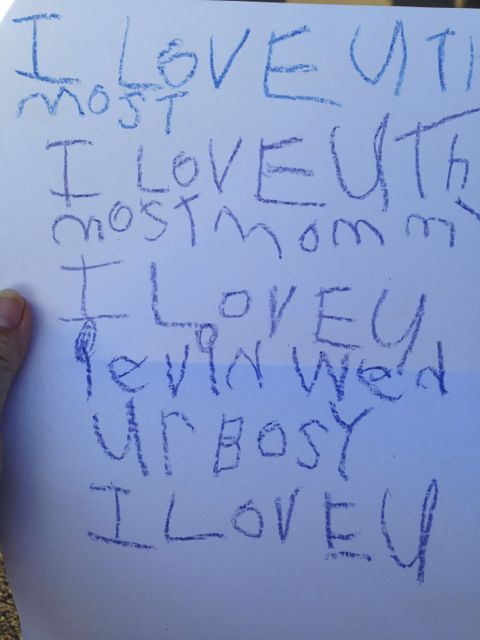 I LOVE U TH
mOST
I LOVE U Th
mOST mommy
I LOVE U
evin wen
Ur BOSY
I LOVE U